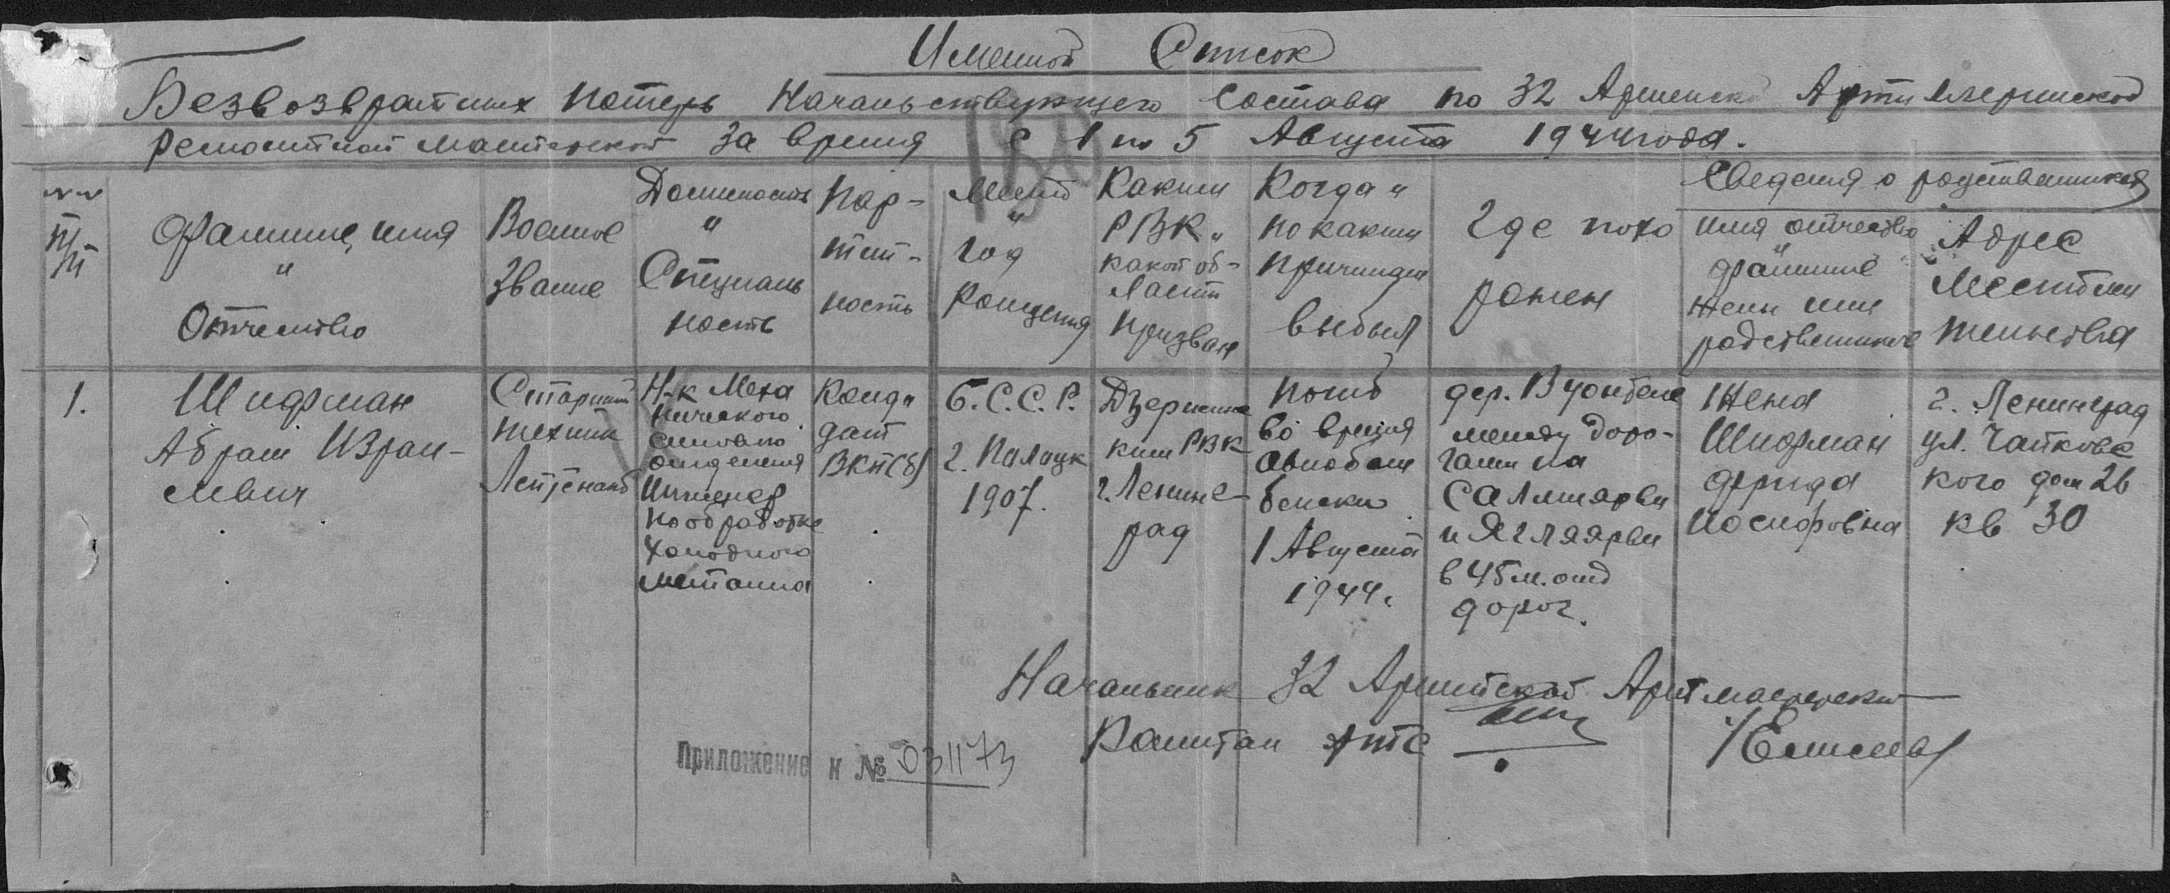 Именной Список
Безвозвратных потерь Начальствующего Состава по 32 Армейской Артиллерийской
ремонтной мастерской за время с 1 по 5 Августа 1944 года.
№№ п/п
Фамилие, имя
"
Отчество
Военное
звание
Должность
"
Специаль
ность
Пар-
тий-
ность
Место
"
год
рождения
Каким
РВК и
какой об-
ласти
призван
Когда и
по каким
причинам
выбыл
Где похо
ронен
Сведения о родственниках
имя отчество
"
фамилие
жены или
родственников
Адрес
Местожи
тельства
1.
Шифман
Абрам Израи-
левич
Старший
техник
Лейтенант
Н-к Меха
нического
отделения
Инженер
по обработке
холодного
металла
Канди
дат
ВКП(б)
Б.С.С.Р.
г. Полоцк
1907.
Дзержинс
ким РВК
г. Ленинг-
рад
Погиб
во время
авиобом
бежки
1 Августа
1944г.
дер. Вуонтеле
между доро-
гами на
Салмиярви
и Яглярви
в 45 м. от
дорог.
Жена
Шифман
Фрида
Иосифовна
г. Ленинград
ул. Чайковс
кого дом 26
кв 30
Начальник 32 Армейской Артмастерской
Капитан АТС
Приложение к № 031173